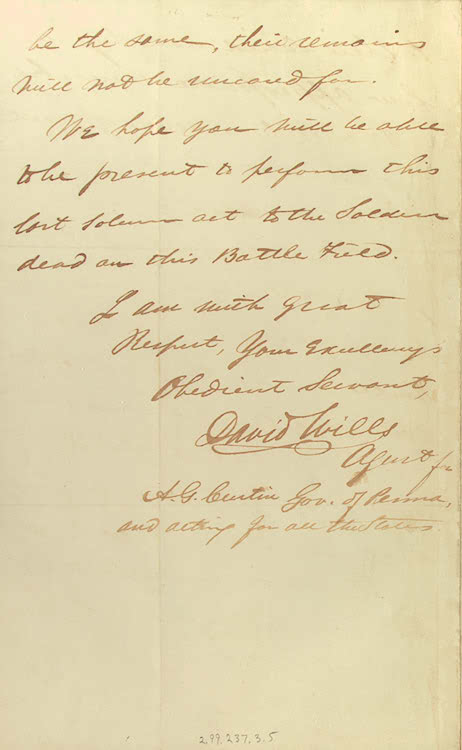 be the same, their remains
will not be uncared for.
We hope you will be able
to be present to perform this
last solemn act to the Soldier
dead on this Battle Field.
I am with great
Respect, Your Excellency's
Obedient Servant,
David Wills
Agent for
A. G. Curtin Gov. of Penna.
and acting for all the States.
2.99.237.3.5